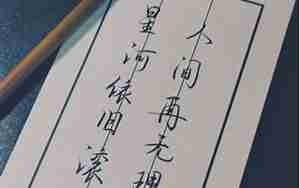 人间再无理
星河依旧滚